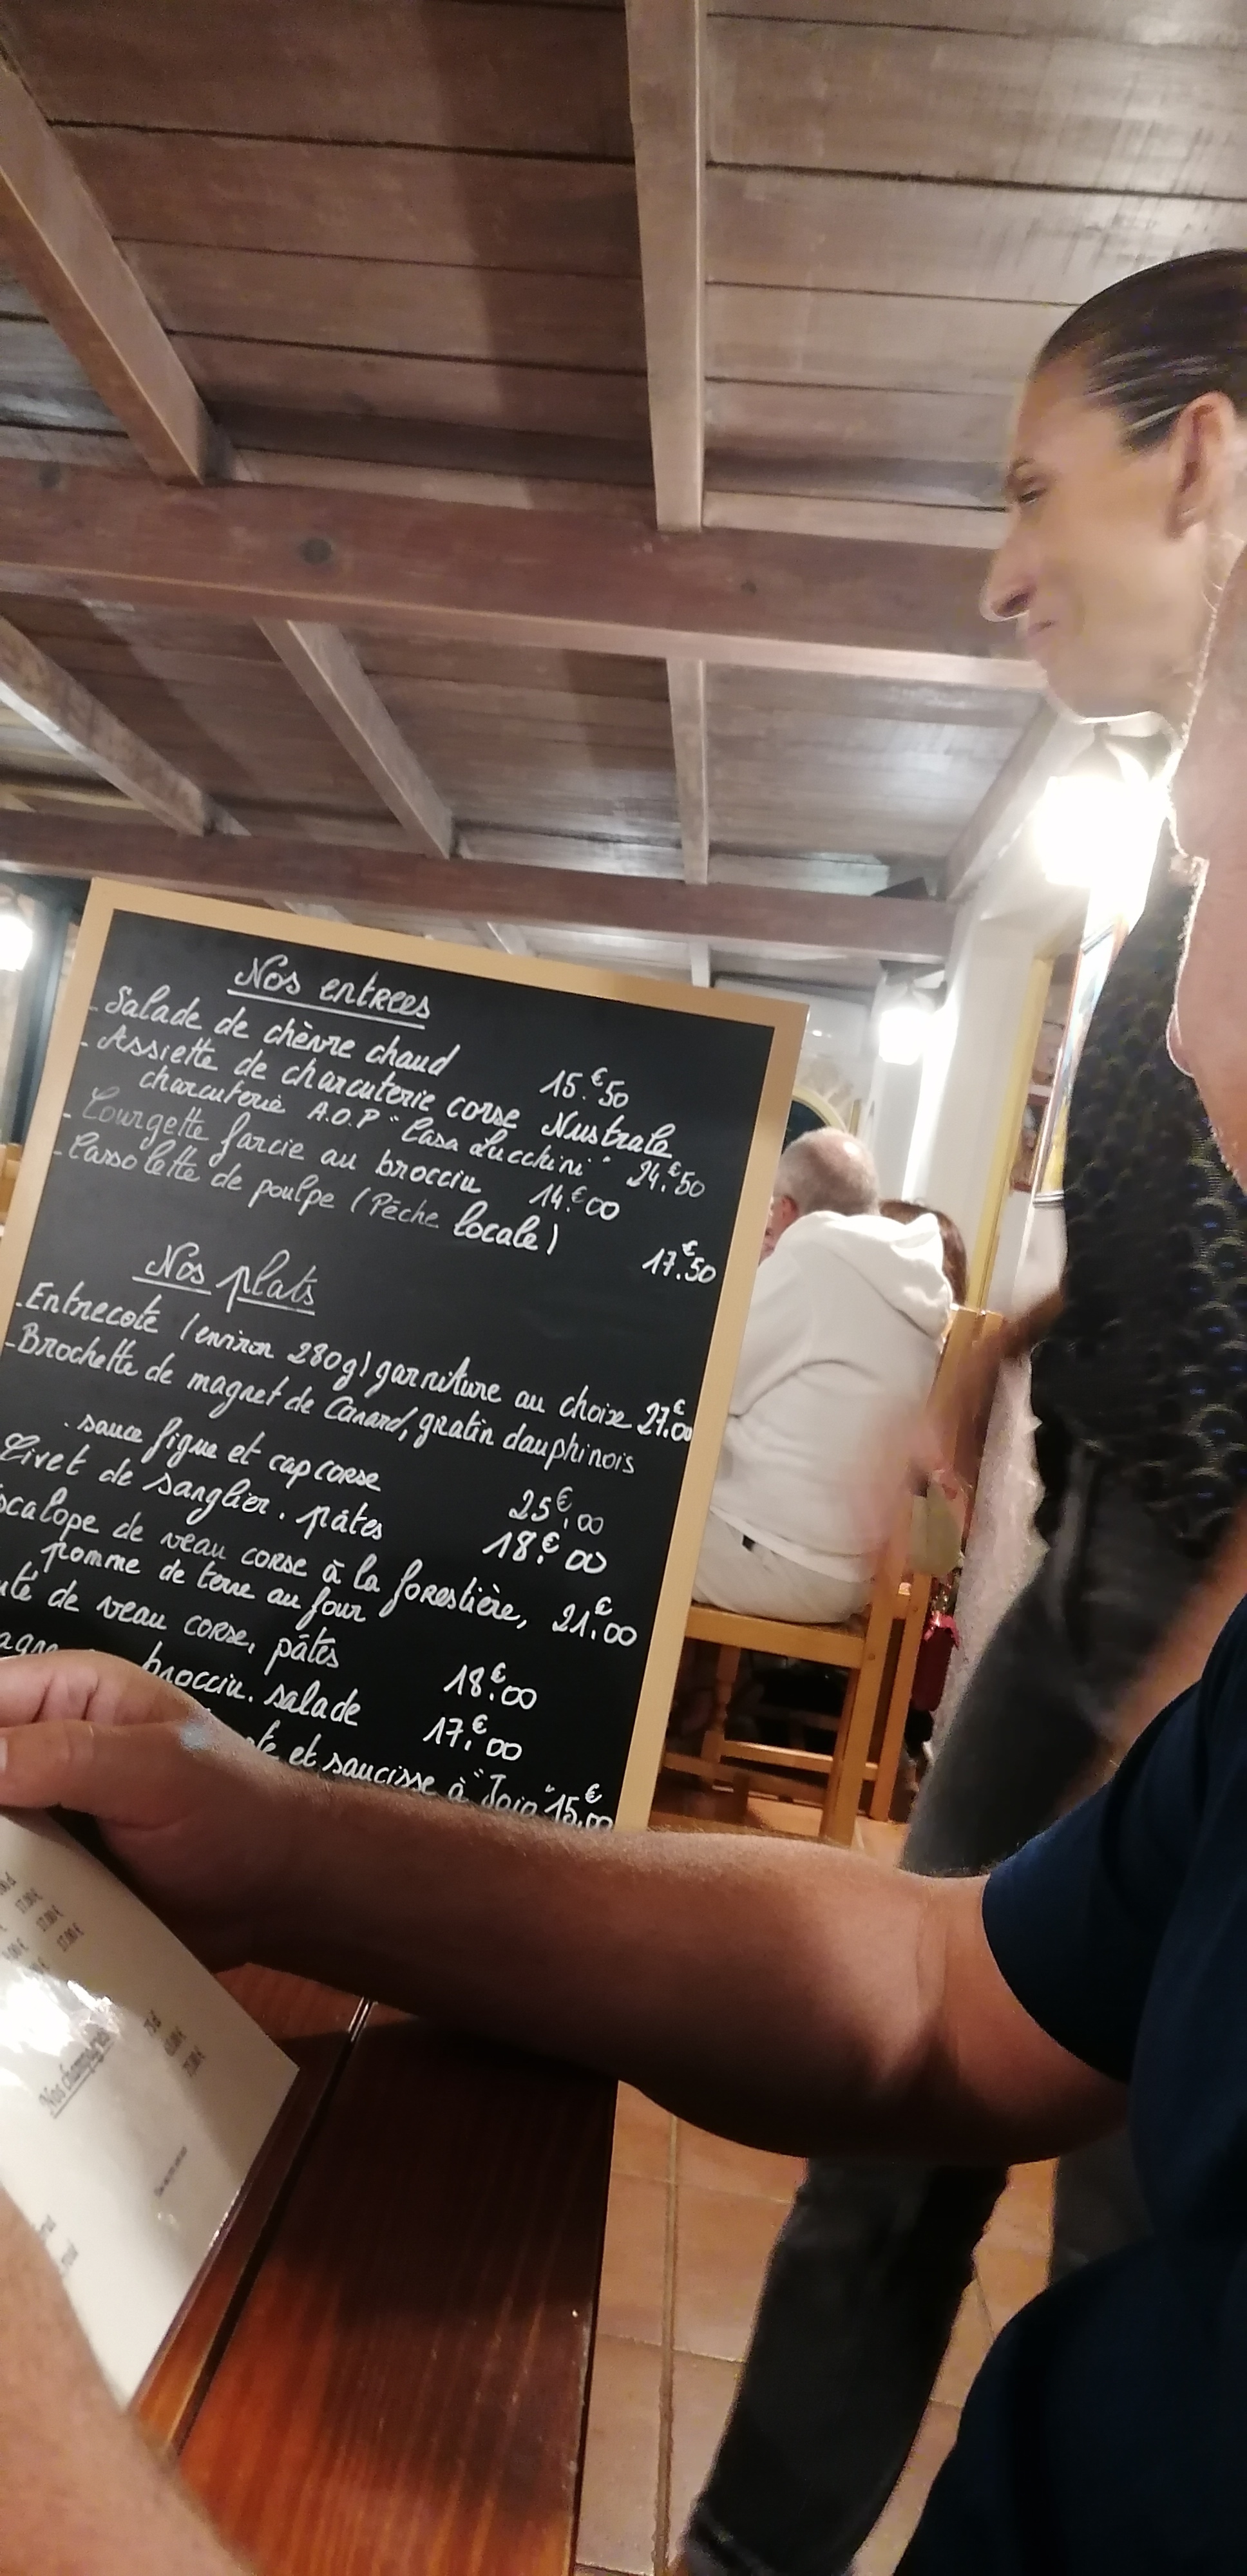 Nos entrees
- Salade de chèvre chaud 15.€50
- Assiette de charcuterie corse Nustrale
charcuterie A.O.P "Casa Lucchini" 24.€50
- Courgette farcie au brocciu 14.€00
- Cassolette de poulpe (Pêche locale) 17.€50
Nos plats
- Entrecote (environ 280g) garniture au choix 27.€00
- Brochette de magret de Canard, gratin dauphinois
. sauce figue et cap corse 25€.00
Civet de sanglier. pâtes 18.€00
scalope de veau corse à la forestière, 21.€00
pomme de terre au four
uté de veau corse, pâtes 18.€00
brocciu. salade 17.€00
et saucisse à "Tojo" 15.€00
17.00 €
17.00 €
17.00 €
Nos champagnes